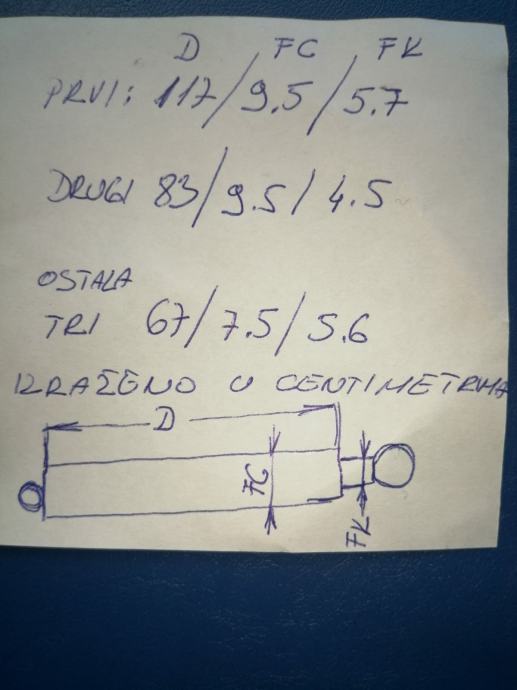 D FC FK
PRVI: 117/9.5/5.7
DRUGI 83/9.5/4.5
OSTALA
TRI 67/7.5/5.6
IZRAŽENO U CENTIMETRIMA
D
FC
FK